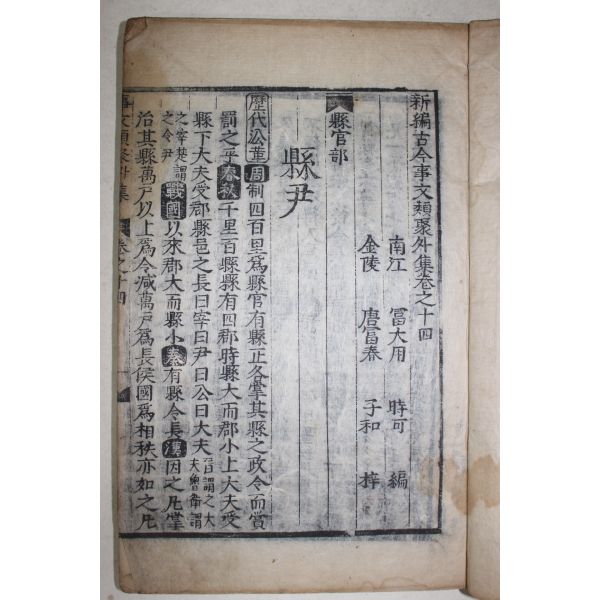 新編古今事文類聚外集卷之十四
南江 冨大用 時可 編
金陵 唐冨春 子和 梓
縣官部
縣尹
歷代沿革 周制四百里爲縣官有縣正各掌其縣之政令而賞
罰之乎春秋千里百縣縣有四郡時縣大而郡小上大夫受
縣下大夫受郡縣邑之長曰宰曰尹曰公曰大夫皆謂之大夫魯衛謂
之宰楚謂之令尹戰國以來郡大而縣小秦有縣令長漢因之凡掌
治其縣萬戶以上爲令減萬戶爲長侯國爲相秩亦如之凡
事文類聚外集 卷之十四